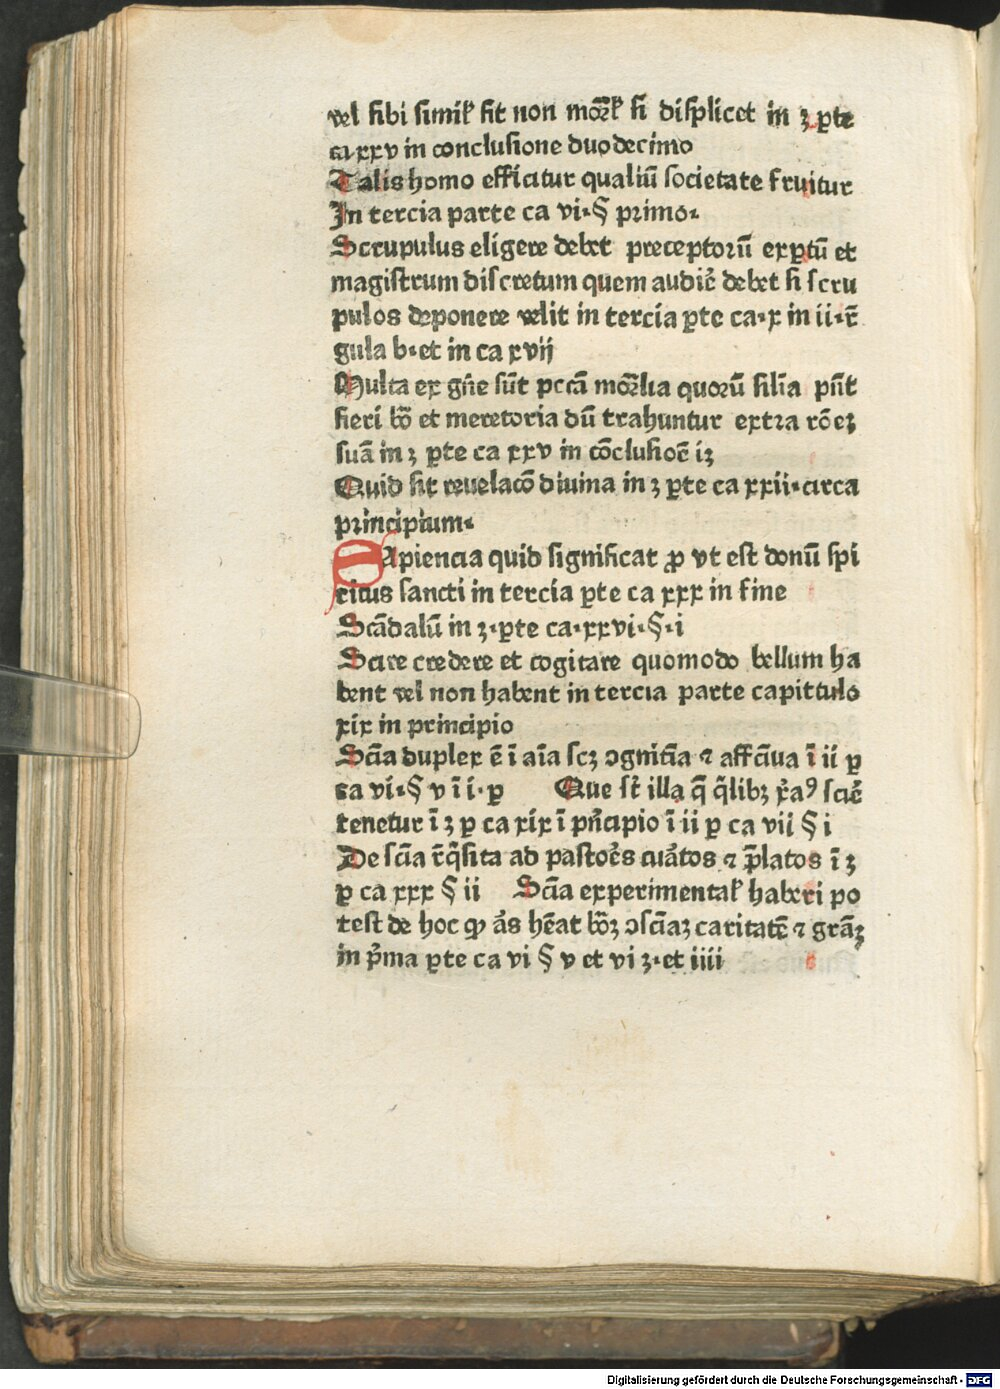 vel sibi simil̛ sit non mor̄l̛ si displicet in ʒ ꝑte
ca xxv in conclusione duodecimo
Talis homo efficitur qualiū societate fruitur
In tercia parte ca vi·§ primo·
Scrupulus eligere debet preceptorū exꝑtū et
magistrum discretum quem audiē debet si scru
pulos deponere velit in tercia ꝑte ca·x in ii·r̄
gula b·et in ca xvij
Multa ex gn̄e sūt pccā mor̄lia quorū silīa pn̄t
fieri bō et meretoria dū trahuntur extra rōeʒ
suā in ʒ ꝑte ca xxv in cōclusioē iʒ
Quid sit reuelacō diuina in ʒ ꝑte ca xxii·circa
principium·
Sapiencia quid significat ꝓ vt est donū spi
ritus sancti in tercia ꝑte ca xxx in fine
Scādalū in ʒ·ꝑte ca·xxvi·§·i
Scire credere et cogitare quomodo bellum ha
bent vel non habent in tercia parte capittulo
xix in principio
Scīa duplex ē ī aīa scʒ ꝯgnitīa ⁊ affcīua ī ii ꝑ
ca vi·§ v ī i·ꝑ Que st̄ illa q̄ q̄libʒ xr̄aꝰ sciē
tenetur ī ʒ ꝑ ca xix ī pn̄cipio ī ii ꝑ ca vii § i
De scīa r̄q̄sita ad pastoēs cuātos ⁊ p̄latos ī ʒ
ꝑ ca xxx § ii Scīa experimental̛ haberi po
test de hoc ꝙ ās hēat bōʒ ꝯscīaʒ caritatē ⁊ grāʒ
in p̄ma ꝑte ca vi § v et vi ʒ·et iiii
Digitalisierung gefördert durch die Deutsche Forschungsgemeinschaft - DFG